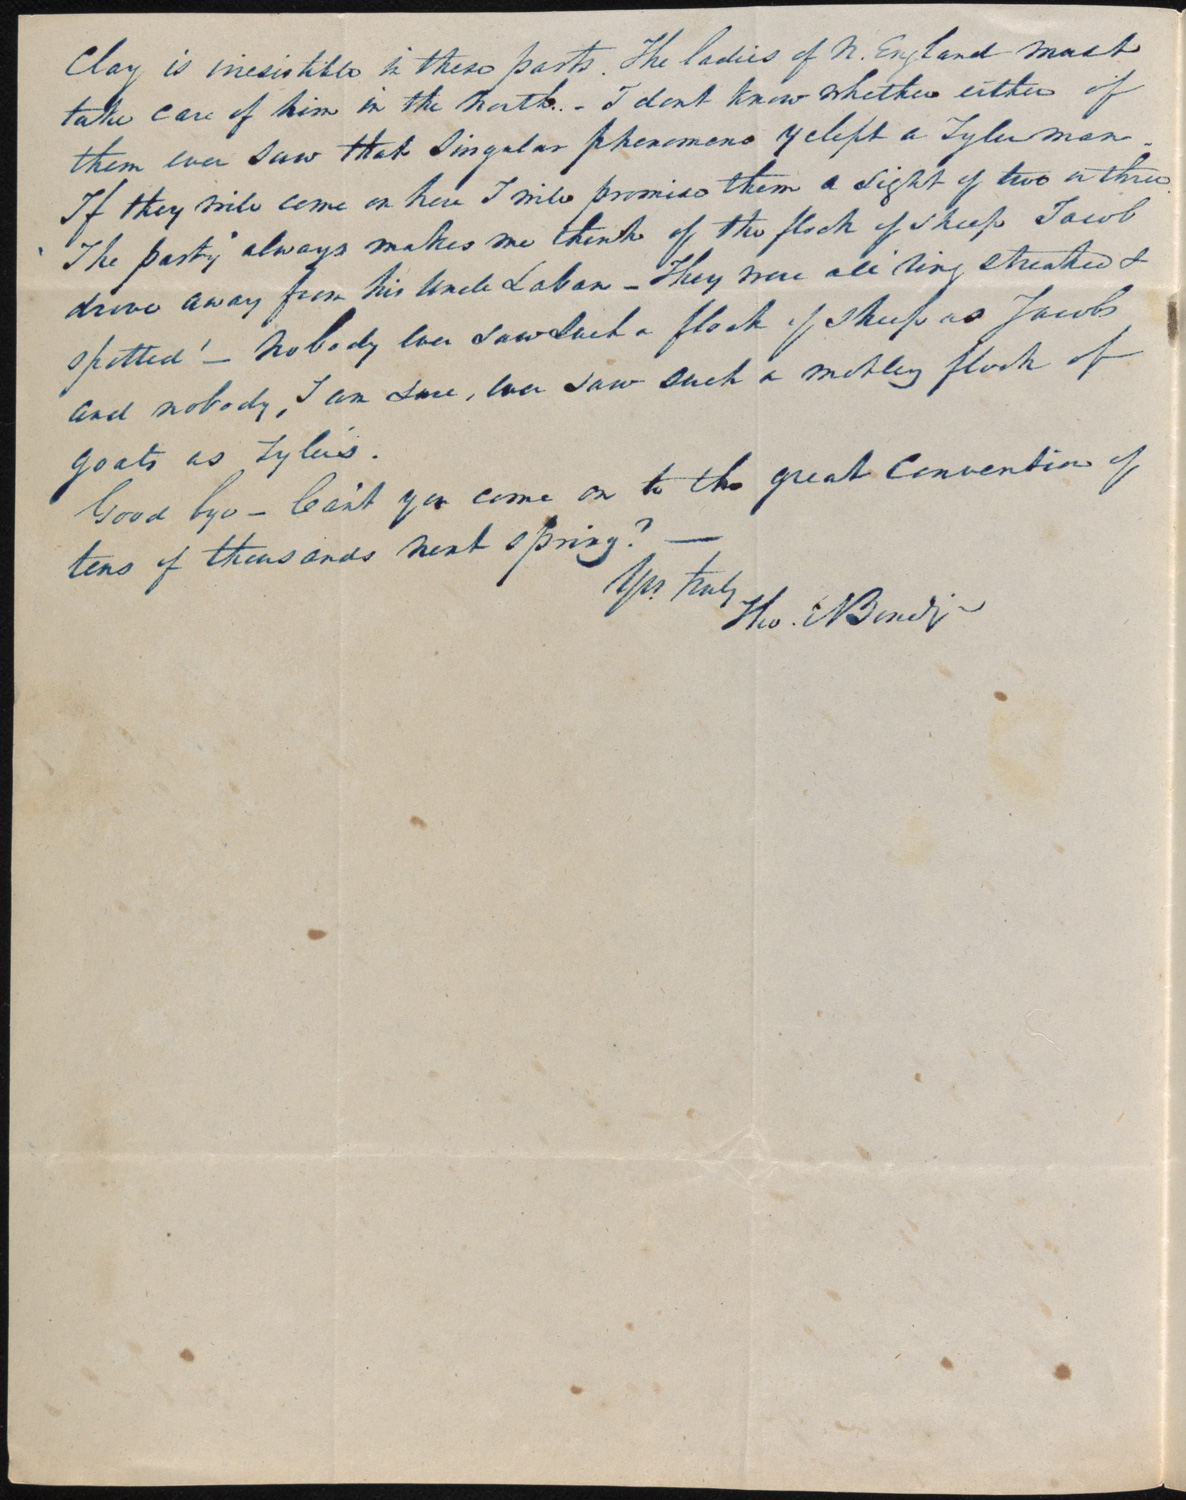 Clay is irresistible in these parts. The ladies of N. England must
take care of him in the North. - I dont know whether either of
them ever saw that singular phenomena yclept a Tyler man -
If they will come on here I will promise them a sight of two or three.
"The party" always makes me think of the flock of sheep Jacob
drove away from his Uncle Laban - They were all ring streaked &
spotted! - Nobody ever saw such a flock of sheep as Jacobs
and nobody, I am sure, ever saw such a motley flock of
goats as Tyler's.
Good bye - Can't you come on to the great Convention of
tens of thousands next spring? —
Yrs. truly
Tho.